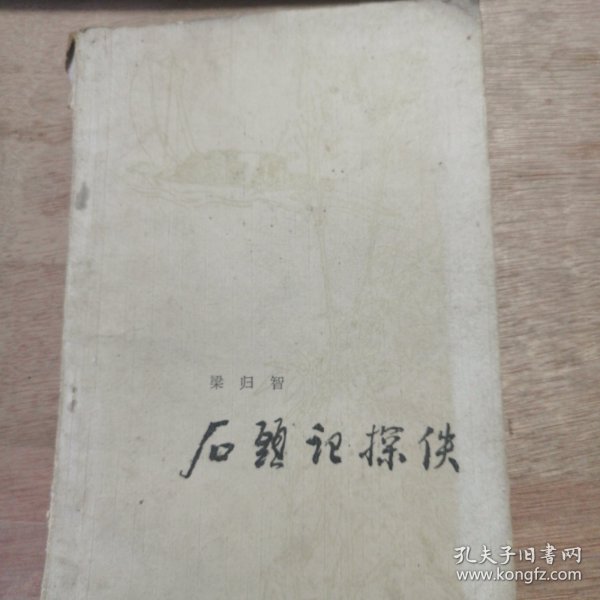 梁归智
石頭记探佚
孔夫子旧書网
www.kongfz.com